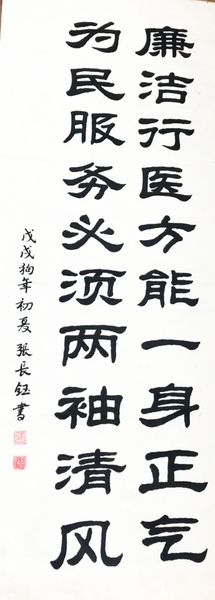 廉洁行医方能一身正气
为民服务必须两袖清风
戊戌狗年初夏张长钰书